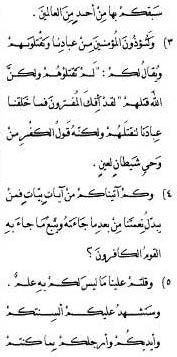 سبقكم بها من أحد من العالمين .
٣) وتُؤذون المؤمنين من عبادنا وتقتلونهم
ويقال لكم : " لم تقتلوهم ولكنّ
الله قتلهم " لقد أفك المفترون فما خلقنا
عبادنا لنقتلهم ولكنّه قول الكفر من
وحي شيطان لعين .
٤) وكم آتيناكم من آيات بيّنات فمن
يبدّل نعمتنا من بعد ما جاءته ويتّبع ما جاء به
القوم الكافرون ؟
٥) وقلتم علينا ما ليس لكم به علم .
وستشهد عليكم ألسنتكم
وأيديكم وأرجلكم بما كنتم